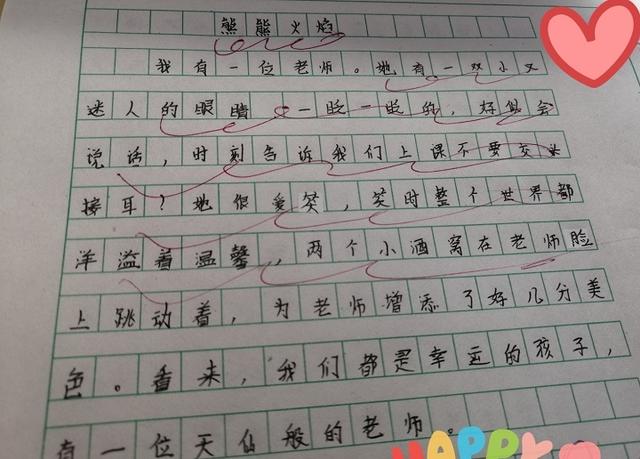 熊熊火焰
我有一位老师。她有一双小又
迷人的眼睛。一眨一眨的,好似会
说话,时刻告诉我们上课不要交头
接耳?她很爱笑,笑时整个世界都
洋溢着温馨,两个小酒窝在老师脸
上跳动着,为老师增添了好几分美
色。看来,我们都是幸运的孩子,
有一位天仙般的老师。
HAPPY